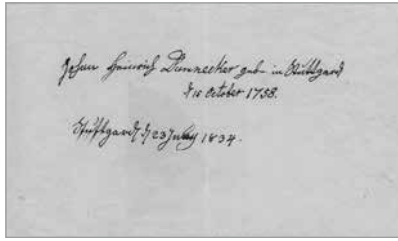 Johan Heinrich Dannecker geb. in Stuttgard
d 15 October 1758.
Stuttgard d 23 July 1834.